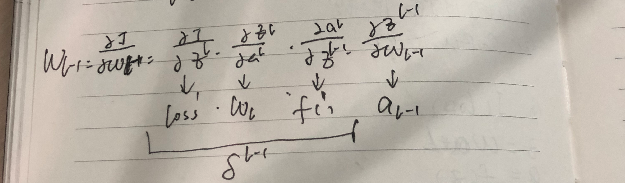 W_{l-1} = ∂J/∂w_{l-1} = ∂J/∂z^l · ∂z^l/∂a^l · ∂a^l/∂z^{l-1} · ∂z^{l-1}/∂w_{l-1}
↓ ↓ ↓ ↓
loss' · w_l f'( ) a_{l-1}
δ^{l-1}